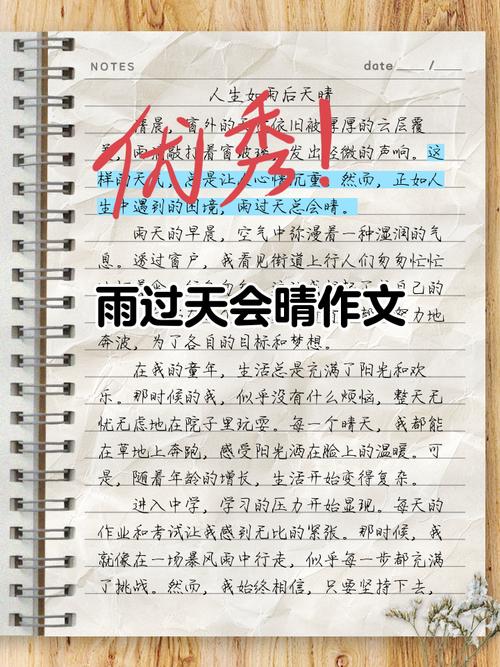 NOTES
date ____ / ____
人生如雨后天晴
清晨，窗外的天空依旧被厚厚的云层覆
雨滴敲打着窗玻璃，发出轻微的声响。这
样的天气，总是让人心情沉重。然而，正如人
生中遇到的困境，雨过天总会晴。
优秀！
雨天的早晨，空气中弥漫着一种湿润的气
息。透过窗户，我看见街道上行人们匆匆忙忙
自己的
雨过天会晴作文
努力地
奔波，为了各自的目标和梦想。
在我的童年，生活总是充满了阳光和欢
乐。那时候的我，似乎没有什么烦恼，整天无
忧无虑地在院子里玩耍。每一个晴天，我都能
在草地上奔跑，感受阳光洒在脸上的温暖。可
是，随着年龄的增长，生活开始变得复杂。
进入中学，学习的压力开始显现。每天的
作业和考试让我感到无比的紧张。那时候，我
就像在一场暴风雨中行走，似乎每一步都充满
了挑战。然而，我始终相信，只要坚持下去，